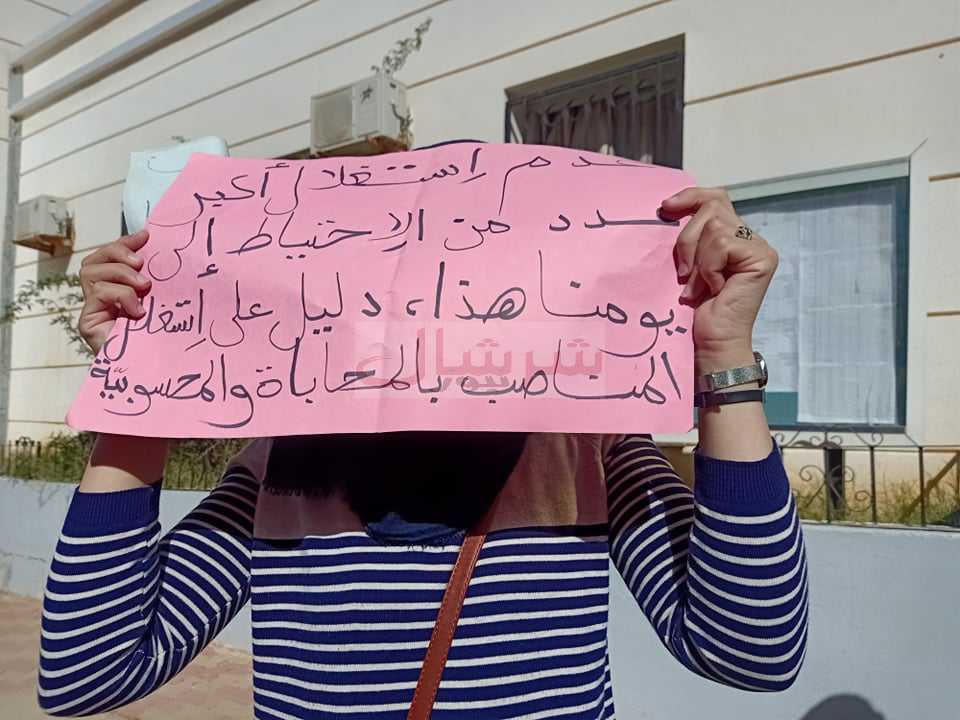 عدم إستغلال أكبر
عدد من الإحتياط إلى
يومنا هذا، دليل على إستغلال
المناصب بالمحاباة والمحسوبيّة
شرشال